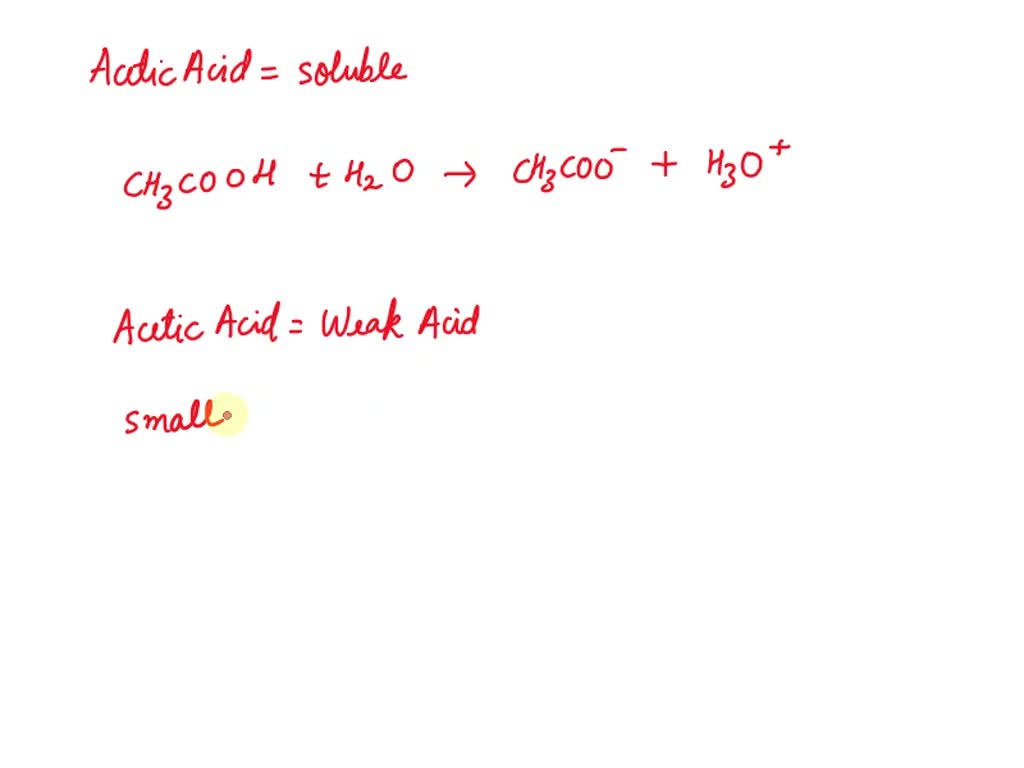 Acetic Acid = soluble
CH₃COOH + H₂O → CH₃COO⁻ + H₃O⁺
Acetic Acid = Weak Acid
small